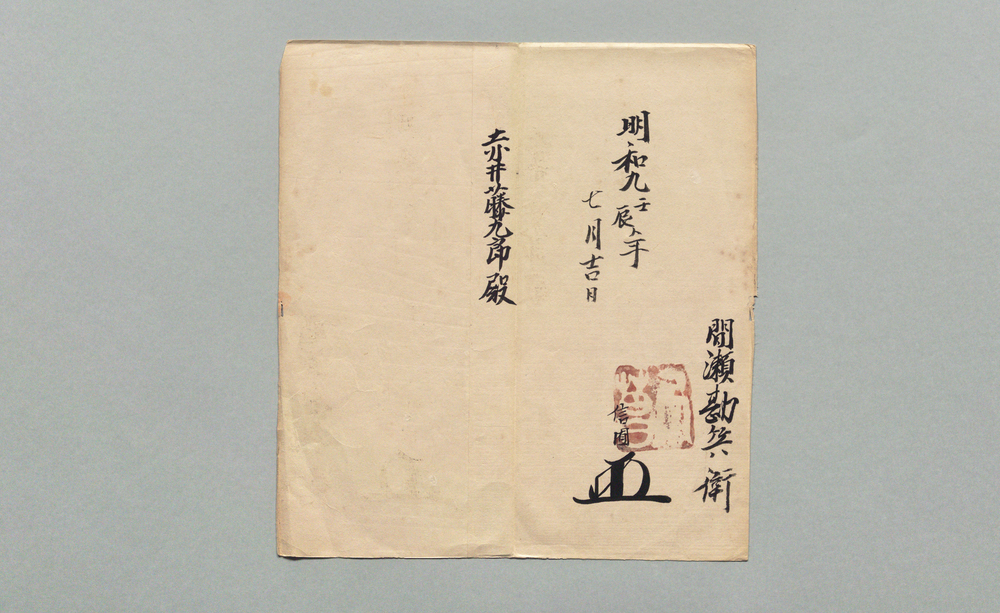 間瀬勘兵衛
信
明和九壬辰年
七月吉日
赤井藤九郎殿